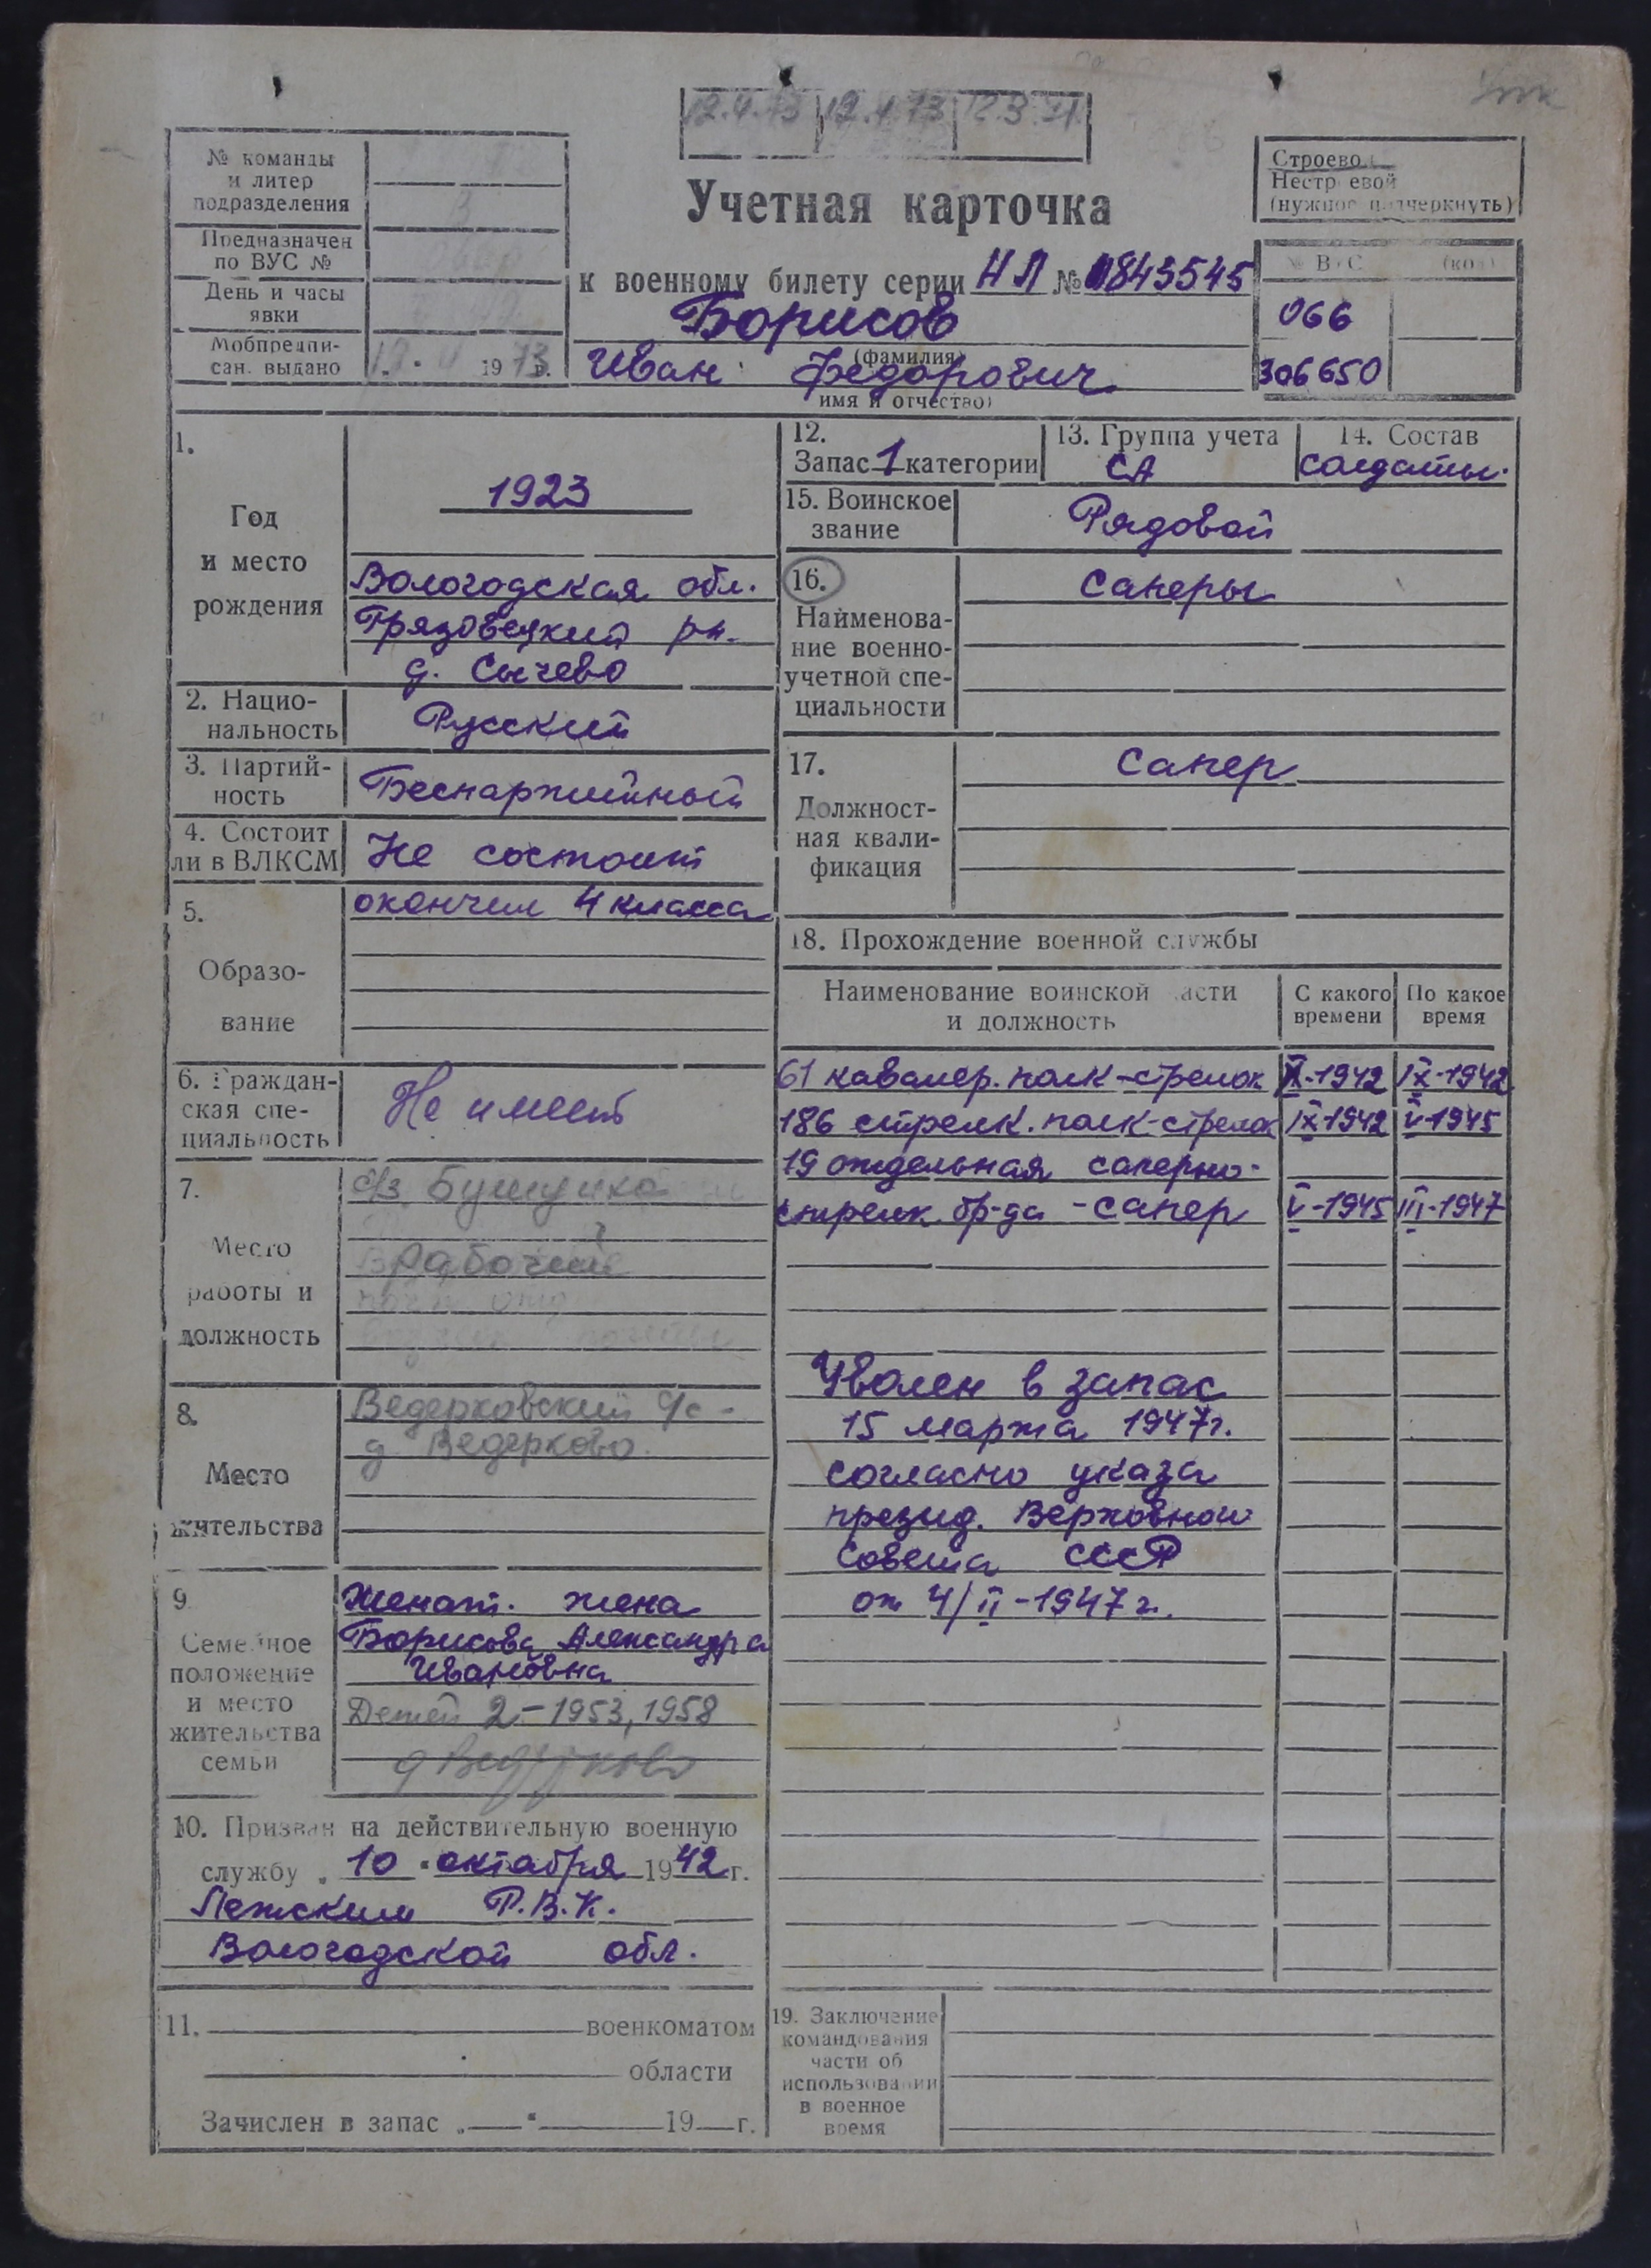 12.4.73 12.4.73 12.3.71
№ команды
и литер
подразделения
Предназначен
по ВУС №
День и часы
явки
Мобпредпи-
сан. выдано 1973г.
Учетная карточка
к военному билету серии НЛ № 1843545
Борисов
(фамилия)
Иван Федорович
имя и отчество)
Строево
Нестроевой
(нужное подчеркнуть)
№ ВУС (код)
066
306650
1.
Год
и место
рождения
1923
Вологодская обл.
Грязовецкий рн.
д. Сычево
2. Нацио-
нальность
Русский
3. Партий-
ность
Беспартийный
4. Состоит
ли в ВЛКСМ
Не состоит
5.
Образо-
вание
окончил 4 класса
6. Граждан-
ская спе-
циальность
Не имеет
7.
Место
работы и
должность
с/з
Рабочий
8.
Место
жительства
Ведерковский с/с -
д. Ведерково.
9
Семейное
положение
и место
жительства
семьи
Женат. жена
Борисова Александра
Ивановна
Детей 2 - 1953, 1958
д Ведерково
10. Призван на действительную военную
службу „10" октября 1942 г.
Лежским Р.В.К.
Вологодской обл.
11. военкоматом
области
Зачислен в запас „ " 19 г.
12.
Запас 1 категории
13. Группа учета
СА
14. Состав
солдаты.
15. Воинское
звание
Рядовой
16.
Наименова-
ние военно-
учетной спе-
циальности
Саперы
17.
Должност-
ная квали-
фикация
Сапер
18. Прохождение военной службы
Наименование воинской части
и должность
С какого
времени
По какое
время
61 кавалер. полк - стрелок X-1942 IX-1942
186 стрелк. полк - стрелок IX-1942 V-1945
19 отдельная саперно-
стрелк. бр-да - сапер V-1945 III-1947
Уволен в запас
15 марта 1947г.
согласно указа
презид. Верховного
Совета СССР
от 4/II-1947 г.
19. Заключение
командования
части об
использовании
в военное
время